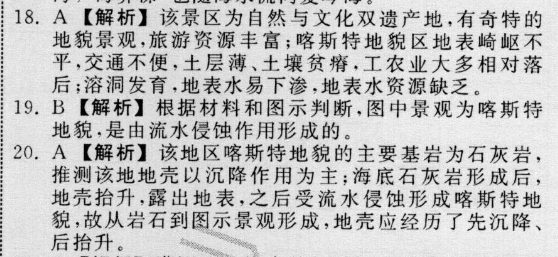 18. A 【解析】该景区为自然与文化双遗产地,有奇特的
地貌景观,旅游资源丰富;喀斯特地貌区地表崎岖不
平,交通不便,土层薄、土壤贫瘠,工农业大多相对落
后;溶洞发育,地表水易下渗,地表水资源缺乏。
19. B 【解析】根据材料和图示判断,图中景观为喀斯特
地貌,是由流水侵蚀作用形成的。
20. A 【解析】该地区喀斯特地貌的主要基岩为石灰岩,
推测该地地壳以沉降作用为主;海底石灰岩形成后,
地壳抬升,露出地表,之后受流水侵蚀形成喀斯特地
貌,故从岩石到图示景观形成,地壳应经历了先沉降、
后抬升。